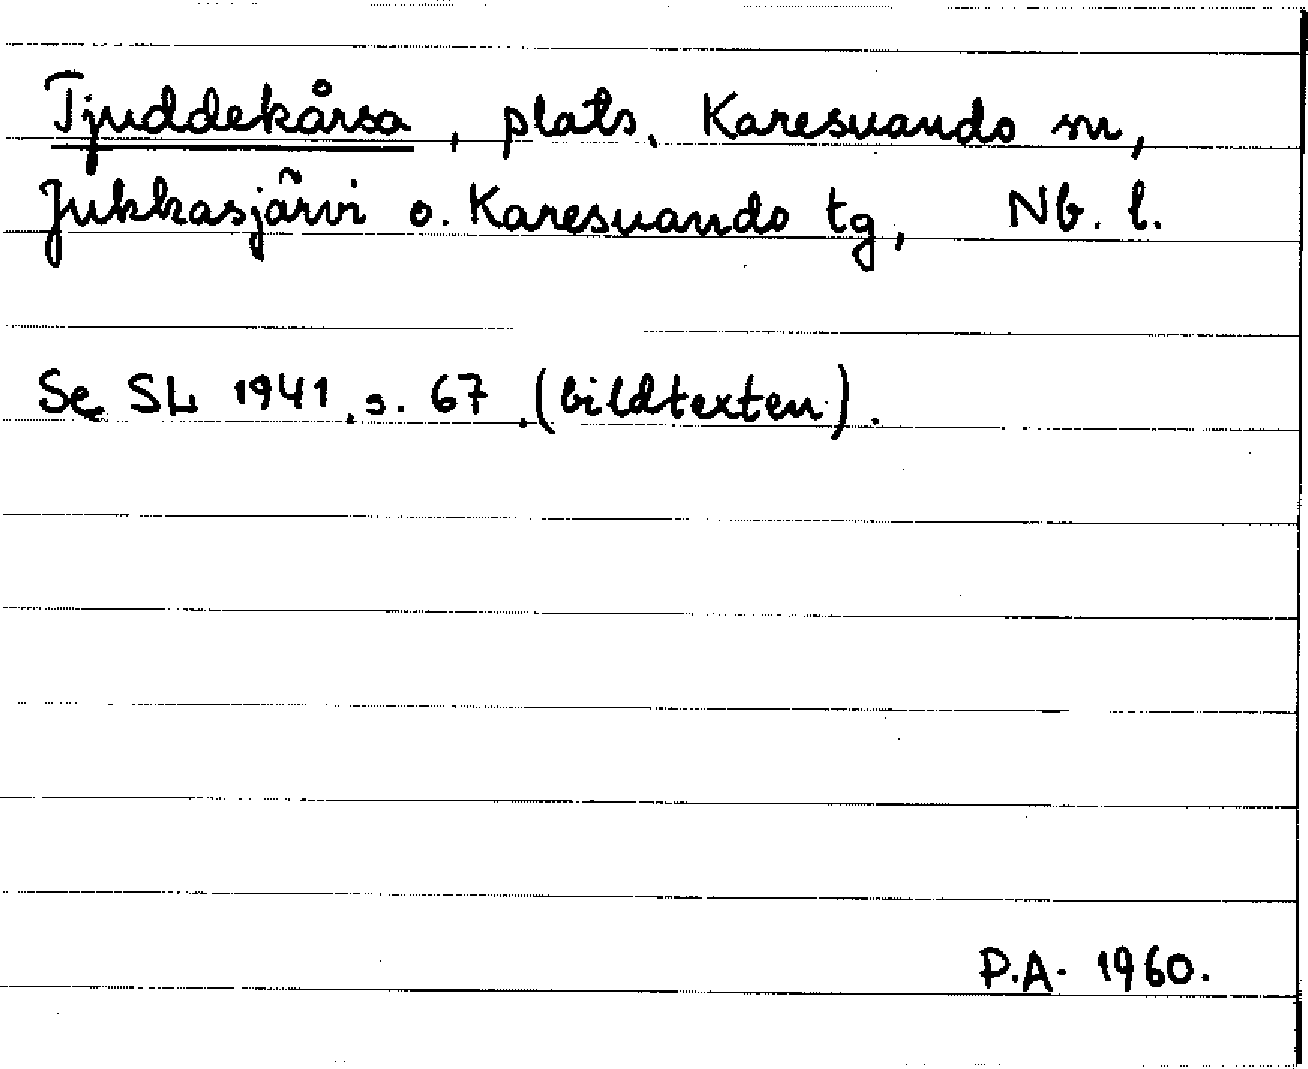 Tjuddekårsa, plats, Karesuando sn,
Jukkasjärvi o. Karesuando tg, Nb. l.
Se SL 1941, s. 67, (bildtexten).
P.A. 1960.